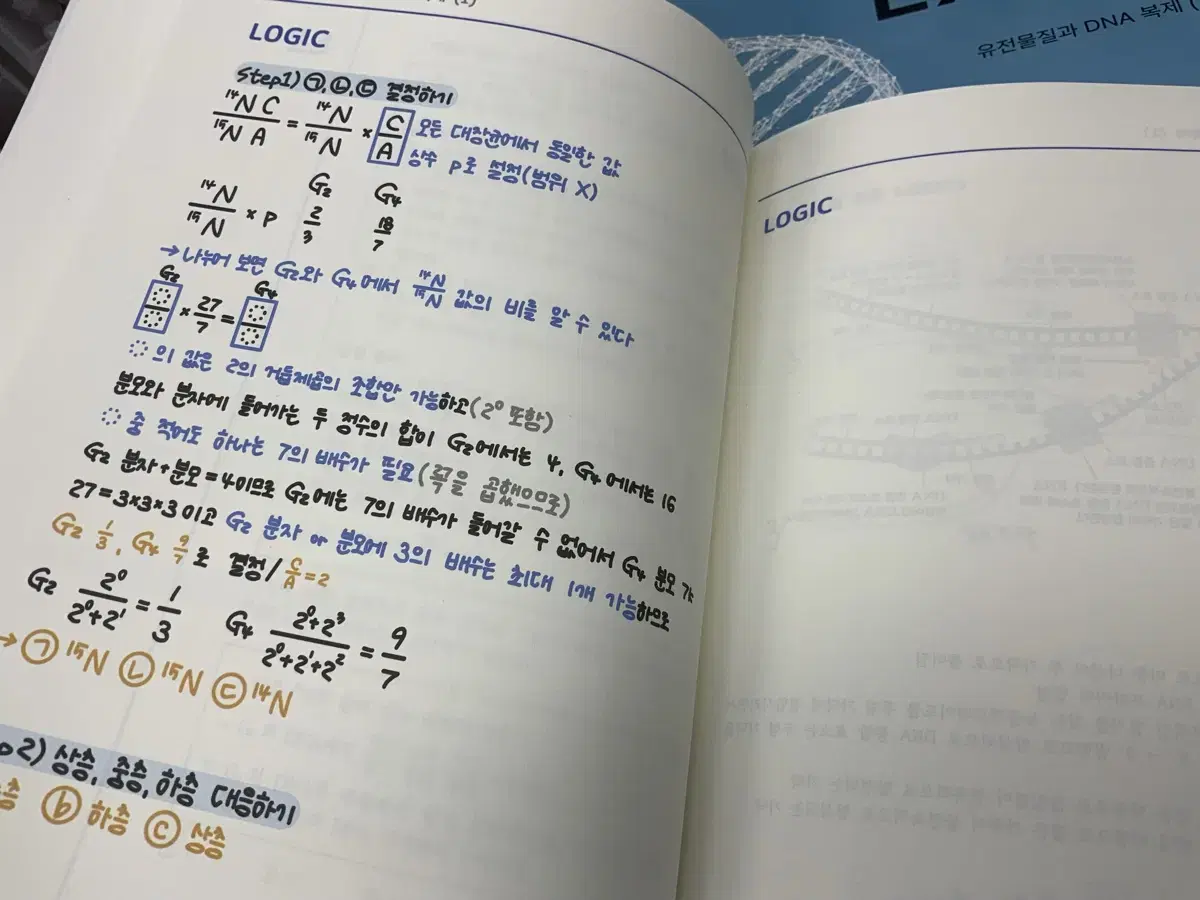 유전물질과 DNA 복제 (
LOGIC
Step1) ㉠, ㉡, ㉢ 결정하기
¹⁴N C / ¹⁵N A = ¹⁴N / ¹⁵N × C / A 모든 대장균에서 동일한 값
상수 P로 설정(범위 X)
G₂ G₄
¹⁴N / ¹⁵N × P 2/3 18/7
→ 나누어 보면 G₂와 G₄에서 ¹⁴N/¹⁵N 값의 비를 알 수 있다
G₂ G₄
× 27/7 =
◌의 값은 2의 거듭제곱의 조합만 가능하고(2⁰ 또함)
분모와 분자에 들어가는 두 정수의 합이 G₂에서는 4, G₄에서는 16
◌ 중 적어도 하나는 7의 배수가 필요(폭을 곱했으므로)
G₂ 분자+분모=4이므로 G₂에는 7의 배수가 들어갈 수 없어서 G₄ 분모가
27=3×3×3이고 G₂ 분자 or 분모에 3의 배수는 최대 1개 가능하므로
G₂ 1/3, G₄ 9/7로 결정/ C/A=2
G₂ 2⁰/2⁰+2¹ = 1/3 G₄ 2⁰+2³/2⁰+2¹+2² = 9/7
→ ㉠ ¹⁵N ㉡ ¹⁵N ㉢ ¹⁴N
2) 상층, 중층, 하층 대응하기
층 ⓑ 하층 ⓒ 상층
LOGIC